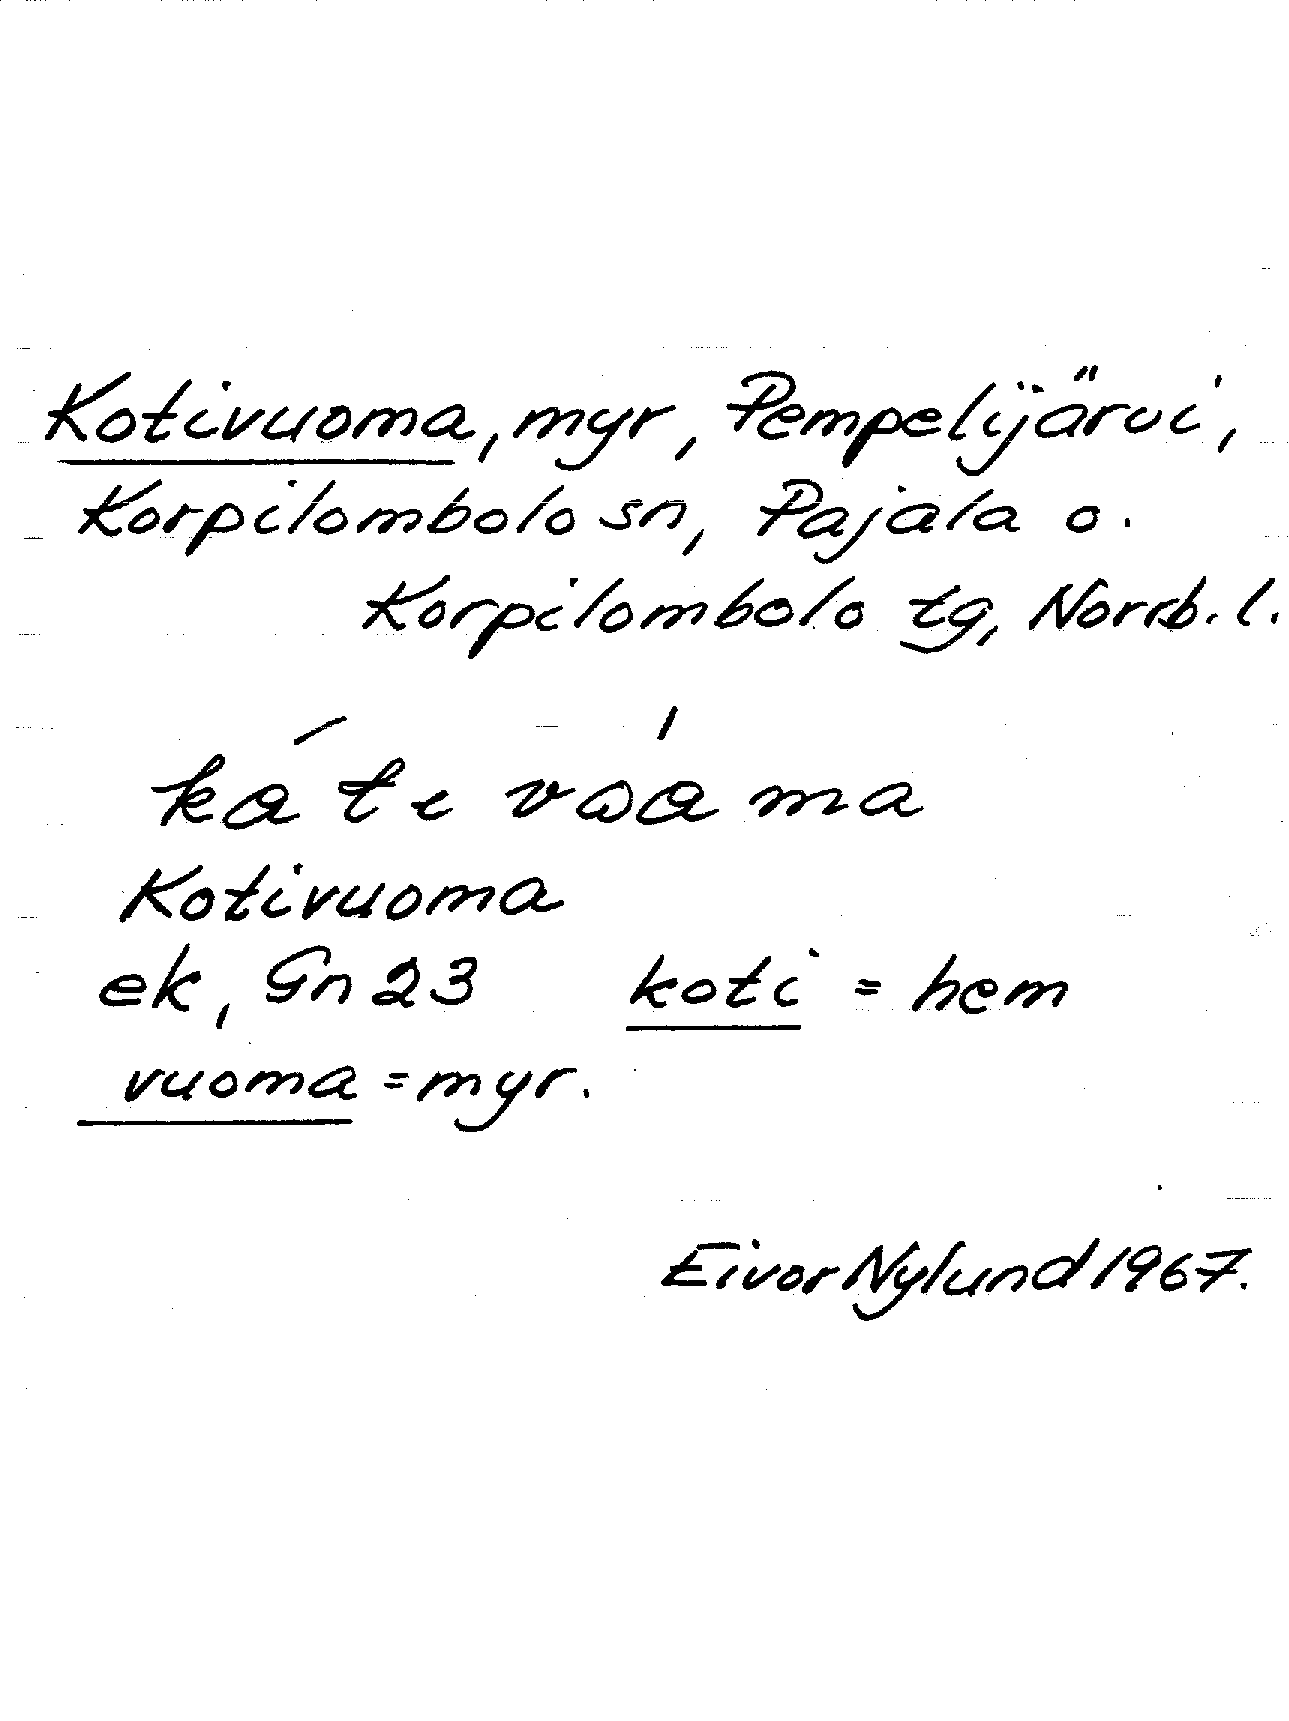 Kotivuoma, myr, Pempelijärvi,
Korpilombolo sn, Pajala o.
Korpilombolo tg, Norrb. l.
Kotivuoma
ek, Gn 23 koti = hem
vuoma = myr.
Eivor Nylund 1967.